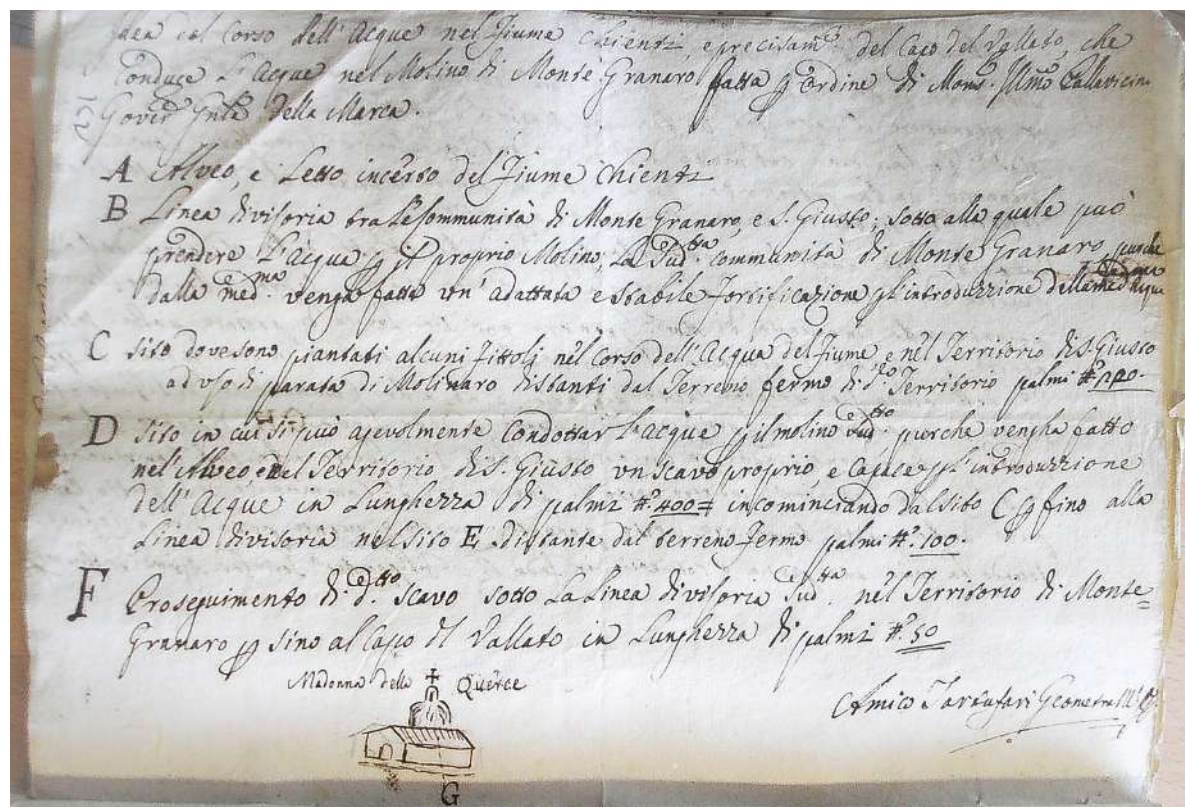 dea col Corso dell'Acque nel Fiume Chienti e precisam.te del Capo del Vallato, che
conduce l'Acque nel Molino di Monte Granaro fatta p ordine di Mons. Illmo Pallavicini
Gover Gnle della Marca.
A Alveo, e Letto incerto del Fiume Chienti
B Linea divisoria tra le Communità di Monte Granaro, e S. Giusto; sotto alla quale può
prendere l'Acqua p il proprio Molino, la Sud.tta communità di Monte Granaro, purche
dalla med.ma venga fatta un'adattata e stabile Fortificazione p l'introduzzione della med.ma Acqua
C Sito dove sono piantati alcuni Fittoli nel Corso dell'Acqua del Fiume e nel Territorio di S. Giusto
ad uso di parata di Molinaro distanti dal Terreno fermo di d.to Territorio palmi #.
D Sito in cui si può agevolmente Condottar l'acque p il molino Sud.tto purche vengha fatto
nel Alveo, e nel Territorio di S. Giusto un scavo proprio, e capace p l'introduzzione
dell'Acque in Lunghezza di palmi #. 400 = incominciando dal sito C p fino alla
Linea divisoria nel sito E distante dal terreno fermo palmi #. 100.
F Proseguimento di d.tto scavo sotto la Linea divisoria Sud.tta nel Territorio di Monte=
Granaro p sino al Capo del Vallato in Lunghezza di palmi #. 50
Madonna delle Querce
Amico Geometra
G